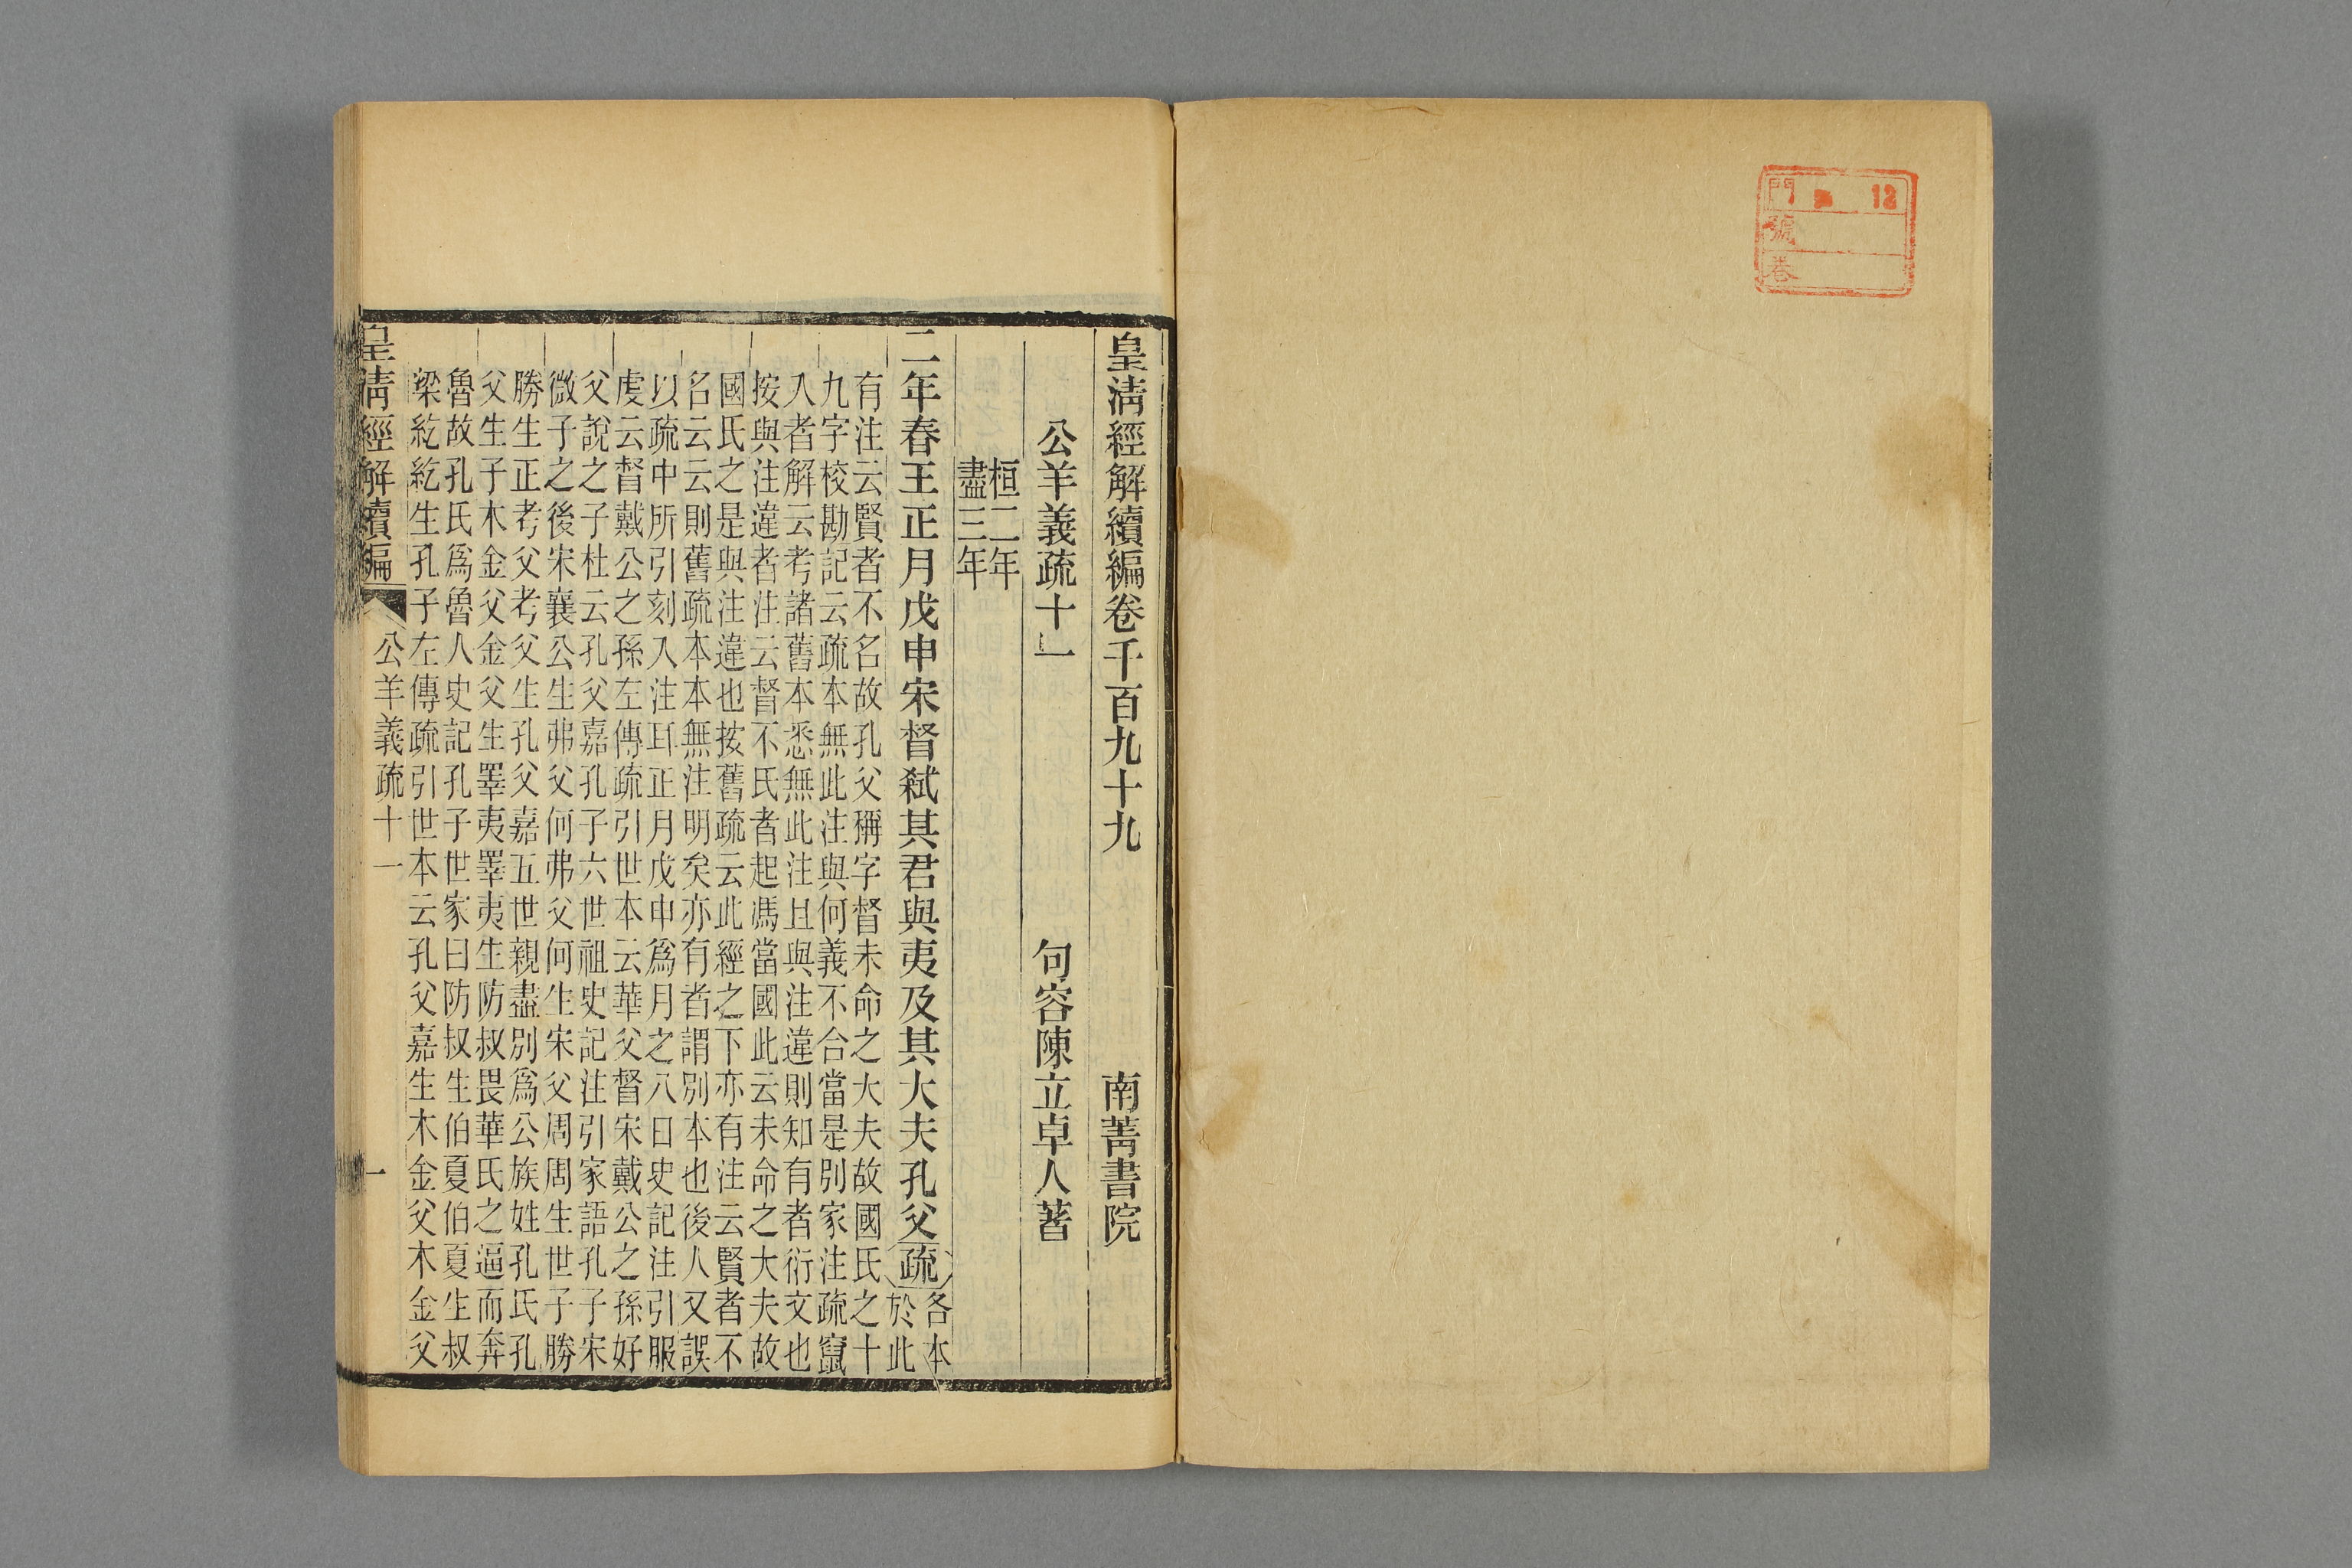 門 12
號
卷
皇清經解續編卷千百九十九 南菁書院
公羊義疏十一 句容陳立卓人著
桓二年
盡三年
二年春王正月戊申宋督弑其君與夷及其大夫孔父 疏 各本
於此
有注云賢者不名故孔父稱字督未命之大夫故國氏之十
九字校勘記云疏本無此注與何義不合當是別家注疏竄
入者解云考諸舊本悉無此注且與注違則知有者衍文也
按與注違者注云督不氏者起馮當國此云未命之大夫故
國氏之是與注違也按舊疏云此經之下亦有注云賢者不
名云云則舊疏本本無注明矣亦有者謂別本也後人又誤
以疏中所引刻入注耳正月戊申爲月之八日史記注引服
虔云督戴公之孫左傳疏引世本云華父督宋戴公之孫好
父說之子杜云孔父嘉孔子六世祖史記注引家語孔子宋
微子之後宋襄公生弗父何弗父何生宋父周周生世子勝
勝生正考父考父生孔父嘉五世親盡別爲公族姓孔氏孔
父生子木金父金父生睪夷睪夷生防叔畏華氏之逼而奔
魯故孔氏爲魯人史記孔子世家曰防叔生伯夏伯夏生叔
梁紇紇生孔子左傳疏引世本云孔父嘉生木金父木金父
皇清經解續編 公羊義疏十一 一